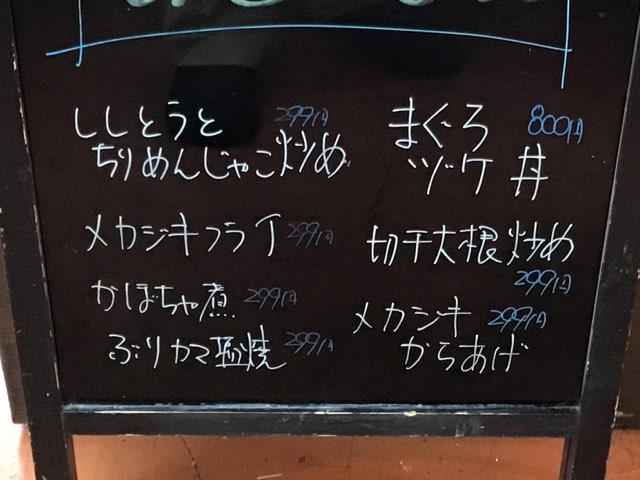 ししとうと 299円
ちりめんじゃこ炒め
メカジキフライ 299円
かぼちゃ煮 299円
ぶりカマ塩焼 299円
まぐろ 800円
ヅケ丼
切干大根炒め
299円
メカジキ 299円
からあげ